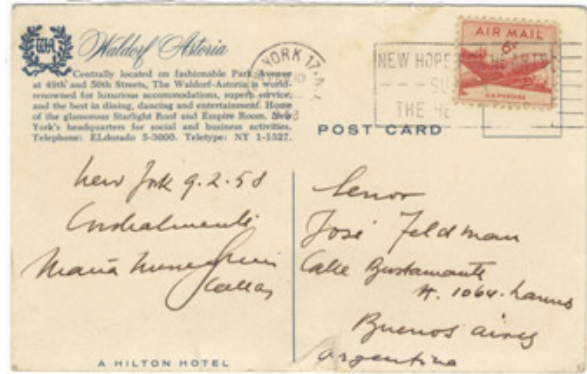 WA
Waldorf Astoria
Centrally located on fashionable Park Avenue
at 49th and 50th Streets, The Waldorf-Astoria is world-
renowned for luxurious accommodations, superb service,
and the best in dining, dancing and entertainment. Home
of the glamorous Starlight Roof and Empire Room. New
York's headquarters for social and business activities.
Telephone: ELdorado 5-3000. Teletype: NY 1-1527.
YORK 17
NEW HOPE HEARTS
THE
AIR MAIL
6¢
U.S. POSTAGE
POST CARD
New York 9.2.58
Cordialmente
Maria Meneghini
Callas
Senor
José Feldman
Calle Bustamante
N. 1064. Lanus
Buenos Aires
Argentina
A HILTON HOTEL